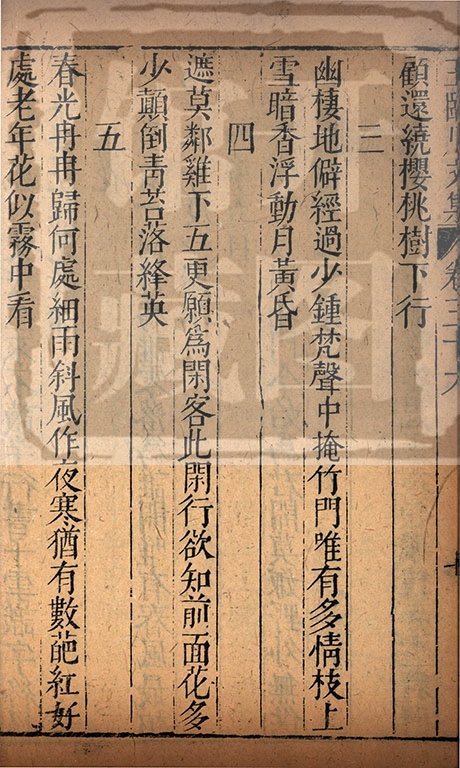 集 卷三十六
顧還繞櫻桃樹下行
三
幽棲地僻經過少鍾梵聲中掩竹門唯有多情枝上
雪暗香浮動月黃昏
四
遮莫鄰雞下五更願爲閑客此閑行欲知前面花多
少顛倒靑苔落絳英
五
春光冉冉歸何處細雨斜風作夜寒猶有數葩紅好
處老年花似霧中看